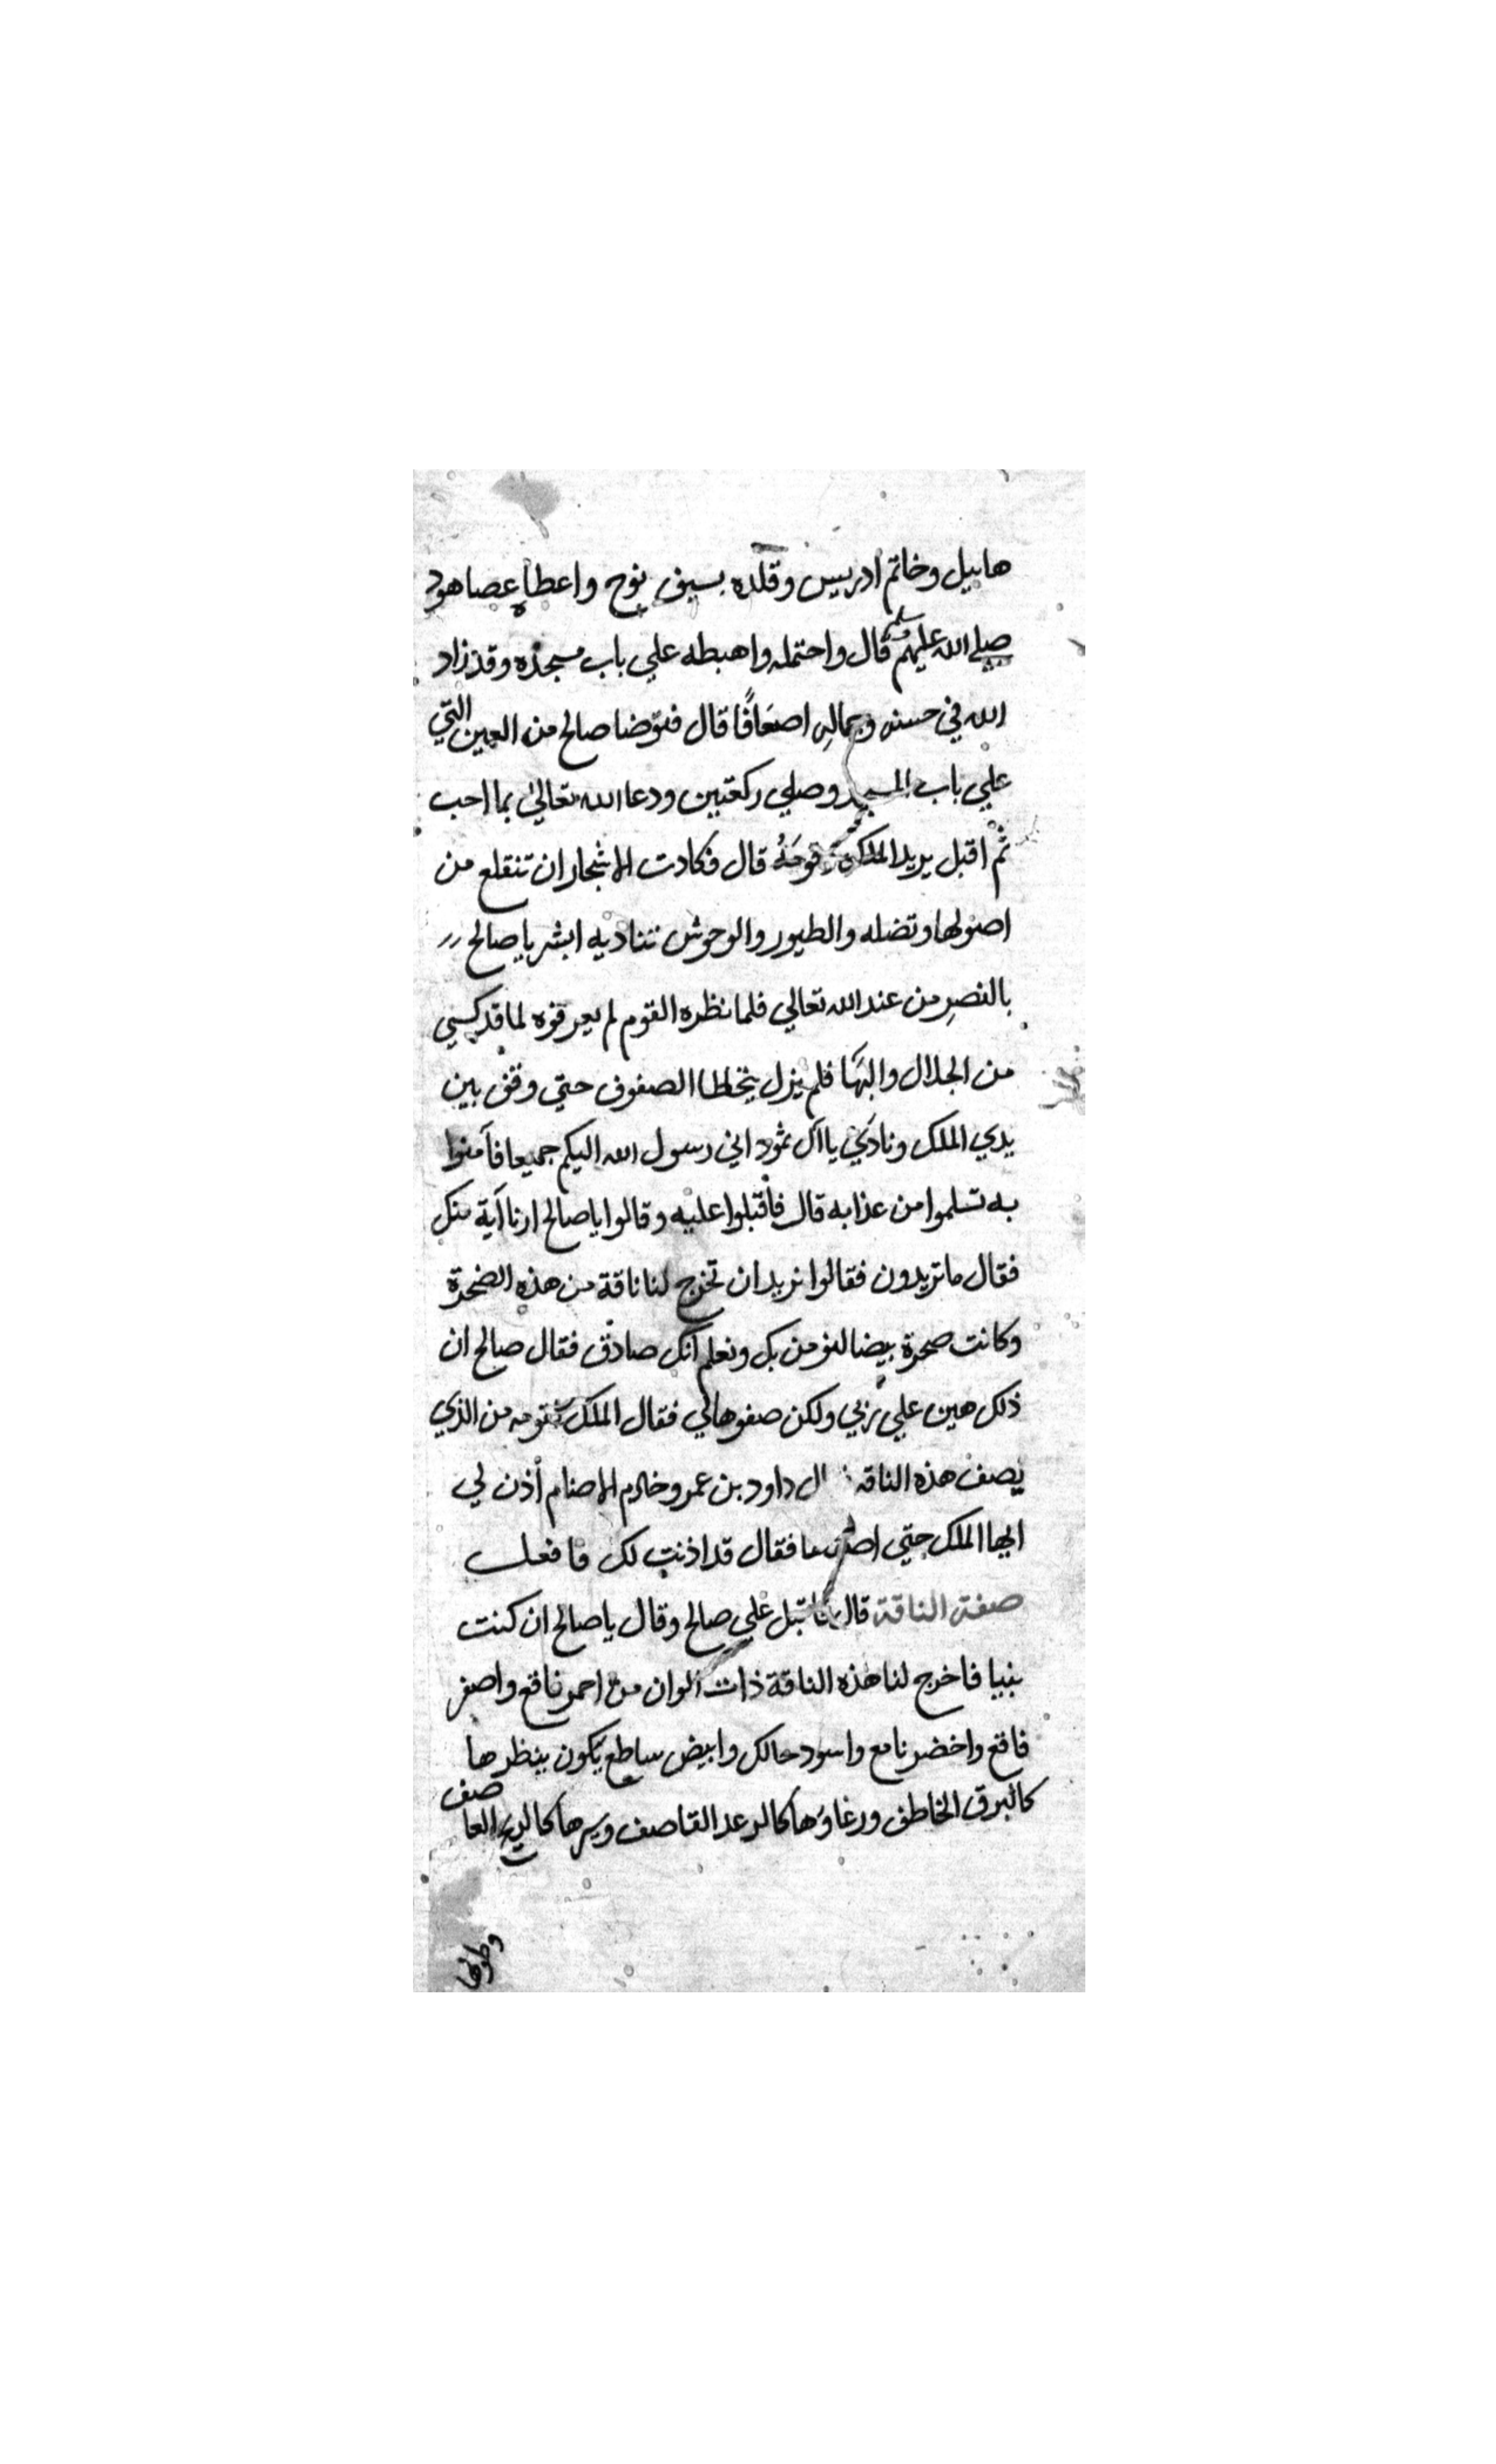 هابيل وخاتم ادريس وقلده بسيف نوح واعطاه عصا هود
صلى الله عليهم وسلم قال واحتمله واهبطه علي باب مسجده وقد زاد
الله في حسنه وجماله اضعافًا قال فتوضا صالح من العين التي
علي باب المسجد وصلي ركعتين ودعا الله تعالي بما احب
ثم اقبل يريد الملك وقومه قال فكادت الاشجار ان تنقلع من
اصولها وتضله والطيور والوحوش تناديه ابشر يا صالح
بالنصرِ من عند الله تعالي فلما نظره القوم لم يعرفوه لما قد كسي
من الجلال والبها فلم يزل يتخطا الصفوف حتي وقف بين
يدي الملك ونادي يا آل ثمود اني رسول الله اليكم جميعا فآمنوا
به تسلموا من عذابه قال فأقبلوا عليه وقالوا يا صالح ارنا آية منك
فقال ما تريدون فقالوا نريد ان تخرج لنا ناقة من هذه الصخرة
وكانت صخرة بيضا لنومن بك ونعلم انك صادق فقال صالح ان
ذلك هين علي ربي ولكن صفوها لي فقال الملك لقومه من الذي
يصف هذه الناقه ال داود بن عمرو خادم الاصنام أذن لي
ايها الملك حتي اصفها فقال قد اذنت لك فافعل
صفة الناقة قال فاقبل علي صالح وقال يا صالح ان كنت
نبيا فاخرج لنا هذه الناقة ذات الوان من احمر ناقع واصفر
فاقع واخضر نامع واسود حالك وابيض ساطع يكون بنظرها
كالبرق الخاطف ورغاؤها كالرعد القاصف وسيرها كالريح العاصف
وطولها